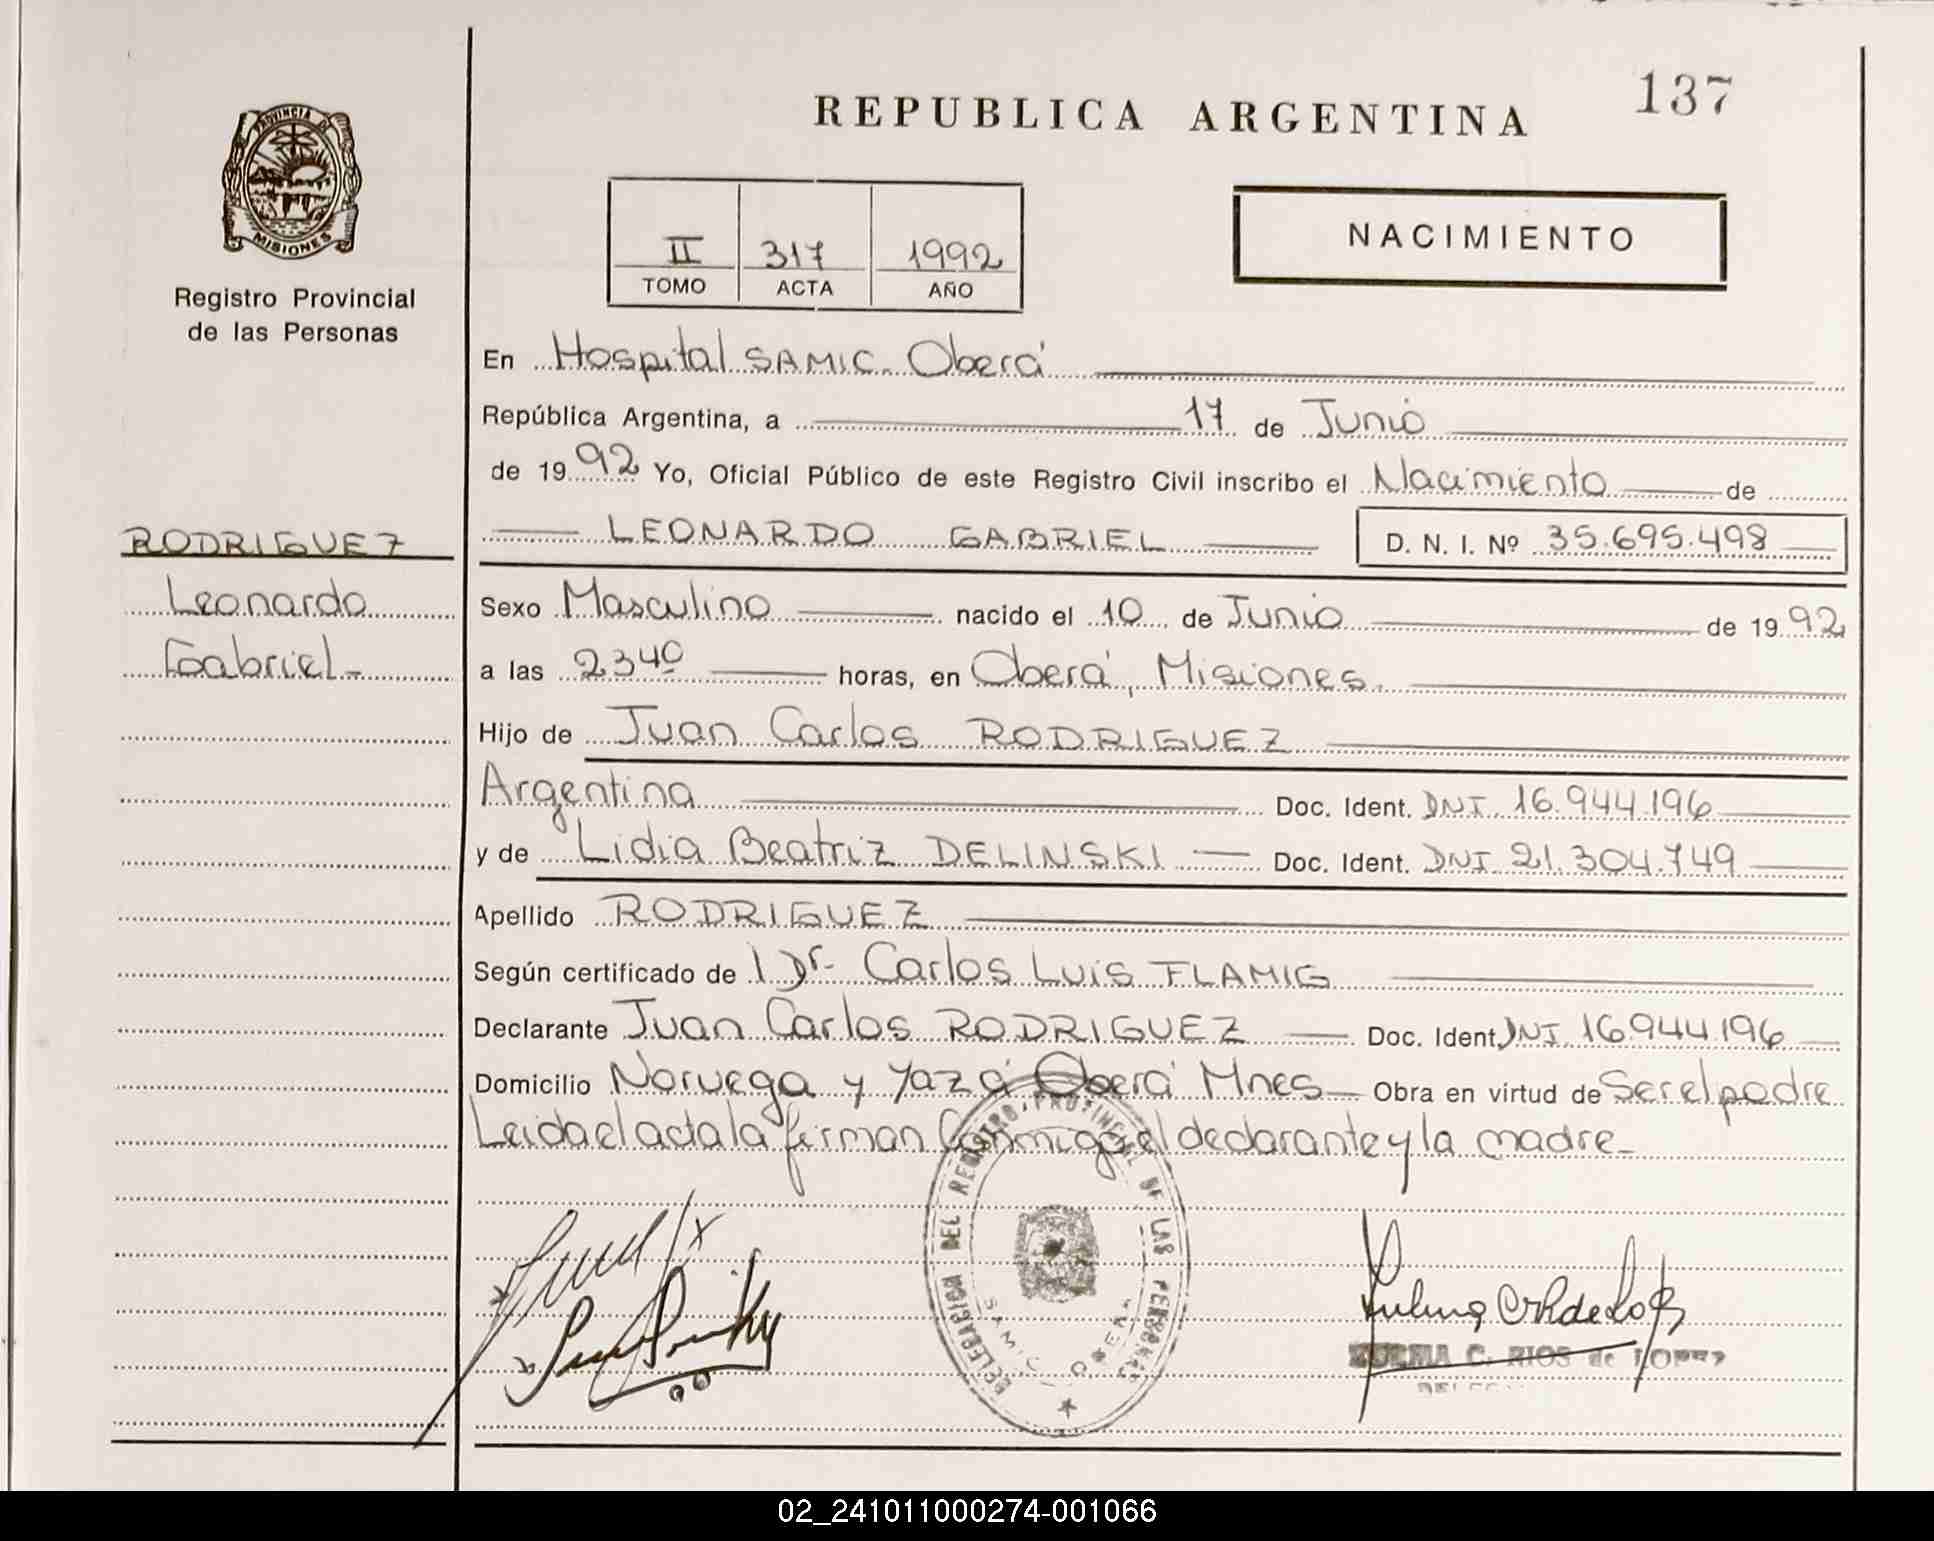 137
REPUBLICA ARGENTINA
PROVINCIA DE
MISIONES
Registro Provincial
de las Personas
NACIMIENTO
II 317 1992
TOMO ACTA AÑO
En Hospital SAMIC. Oberá
República Argentina, a 17 de Junio
de 1992 Yo, Oficial Público de este Registro Civil inscribo el Nacimiento de
LEONARDO GABRIEL D. N. I. Nº 35.695.498
RODRIGUEZ
Leonardo
Gabriel
Sexo Masculino nacido el 10 de Junio de 1992
a las 23 40 horas, en Oberá, Misiones.
Hijo de Juan Carlos RODRIGUEZ
Argentina Doc. Ident. DNI. 16.944.196
y de Lidia Beatriz DELINSKI Doc. Ident. DNI 21.304.749
Apellido RODRIGUEZ
Según certificado de l Dr. Carlos Luis FLAMIG
Declarante Juan Carlos RODRIGUEZ Doc. Ident. DNI 16.944.196
Domicilio Noruega y Yazá Oberá Mnes Obra en virtud de Ser el padre
Leida el acta la firman Conmigo el declarante y la madre
DELEGACION DEL REGISTRO PROVINCIAL DE LAS PERSONAS
SAMIC OBERA
ZULMA C. RIOS de LOPEZ
02_241011000274-001066